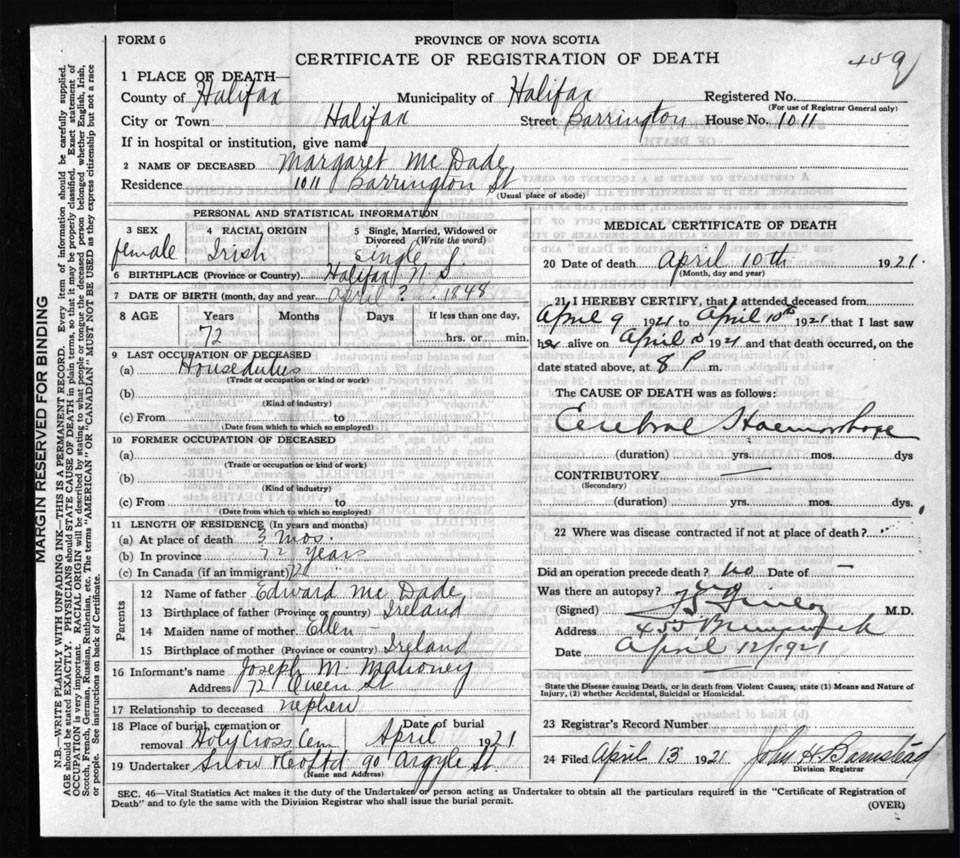 FORM 6
PROVINCE OF NOVA SCOTIA
CERTIFICATE OF REGISTRATION OF DEATH
459
1 PLACE OF DEATH—
County of Halifax Municipality of Halifax Registered No.
(For use of Registrar General only)
City or Town Halifax Street Barrington House No. 1011
If in hospital or institution, give name
2 NAME OF DECEASED Margaret McDade
Residence 1011 Barrington St
(Usual place of abode)
PERSONAL AND STATISTICAL INFORMATION
3 SEX female
4 RACIAL ORIGIN Irish
5 Single, Married, Widowed or Divorced (Write the word) Single
6 BIRTHPLACE (Province or Country) Halifax N.S.
7 DATE OF BIRTH (month, day and year) April ? 1848
8 AGE Years Months Days If less than one day,
72 hrs. or min.
9 LAST OCCUPATION OF DECEASED
(a) Houseduties
(Trade or occupation or kind or work)
(b)
(Kind of industry)
(c) From to
(Date from which to which so employed)
10 FORMER OCCUPATION OF DECEASED
(a)
(Trade or occupation or kind of work)
(b)
(Kind of industry)
(c) From to
(Date from which to which so employed)
11 LENGTH OF RESIDENCE (In years and months)
(a) At place of death 3 mos.
(b) In province 72 years
(c) In Canada (if an immigrant)
Parents
12 Name of father Edward McDade
13 Birthplace of father (Province or country) Ireland
14 Maiden name of mother Ellen —
15 Birthplace of mother (Province or country) Ireland
16 Informant's name Joseph M. Mahoney
Address 72 Queen St
17 Relationship to deceased nephew
18 Place of burial, cremation or removal Holy Cross Cem Date of burial April 1921
19 Undertaker Snow & Co Ltd 90 Argyle St.
(Name and Address)
MEDICAL CERTIFICATE OF DEATH
20 Date of death April 10th 1921
(Month, day and year)
21 I HEREBY CERTIFY, that I attended deceased from
April 9 1921 to April 10th 1921 that I last saw
her alive on April 10 1921 and that death occurred, on the
date stated above, at 8 P m.
The CAUSE OF DEATH was as follows:
Cerebral Haemorrhage
(duration) yrs. mos. dys
CONTRIBUTORY —
(Secondary)
(duration) yrs. mos. dys.
22 Where was disease contracted if not at place of death?
Did an operation precede death? no Date of —
Was there an autopsy? no
(Signed) Finlay M.D.
Address 455 Brunswick
Date April 12/1921
State the Disease causing Death, or in death from Violent Causes, state (1) Means and Nature of
Injury, (2) whether Accidental, Suicidal or Homicidal.
23 Registrar's Record Number
24 Filed April 13 1921 John H Barnstead
Division Registrar
SEC. 46—Vital Statistics Act makes it the duty of the Undertaker or person acting as Undertaker to obtain all the particulars required in the "Certificate of Registration of
Death" and to fyle the same with the Division Registrar who shall issue the burial permit.
(OVER)
MARGIN RESERVED FOR BINDING
N.B.—WRITE PLAINLY WITH UNFADING INK—THIS IS A PERMANENT RECORD. Every item of information should be carefully supplied.
AGE should be stated EXACTLY. PHYSICIANS should STATE CAUSE OF DEATH in plain terms, so that it may be properly classified. Exact statement of
OCCUPATION is very important. RACIAL ORIGIN will be described by stating to what people or tongue the deceased person belonged whether English, Irish,
Scotch, French, German, Russian, Ruthenian, etc. The terms "AMERICAN" OR "CANADIAN" MUST NOT BE USED as they express citizenship but not a race
or people. See instructions on back of Certificate.